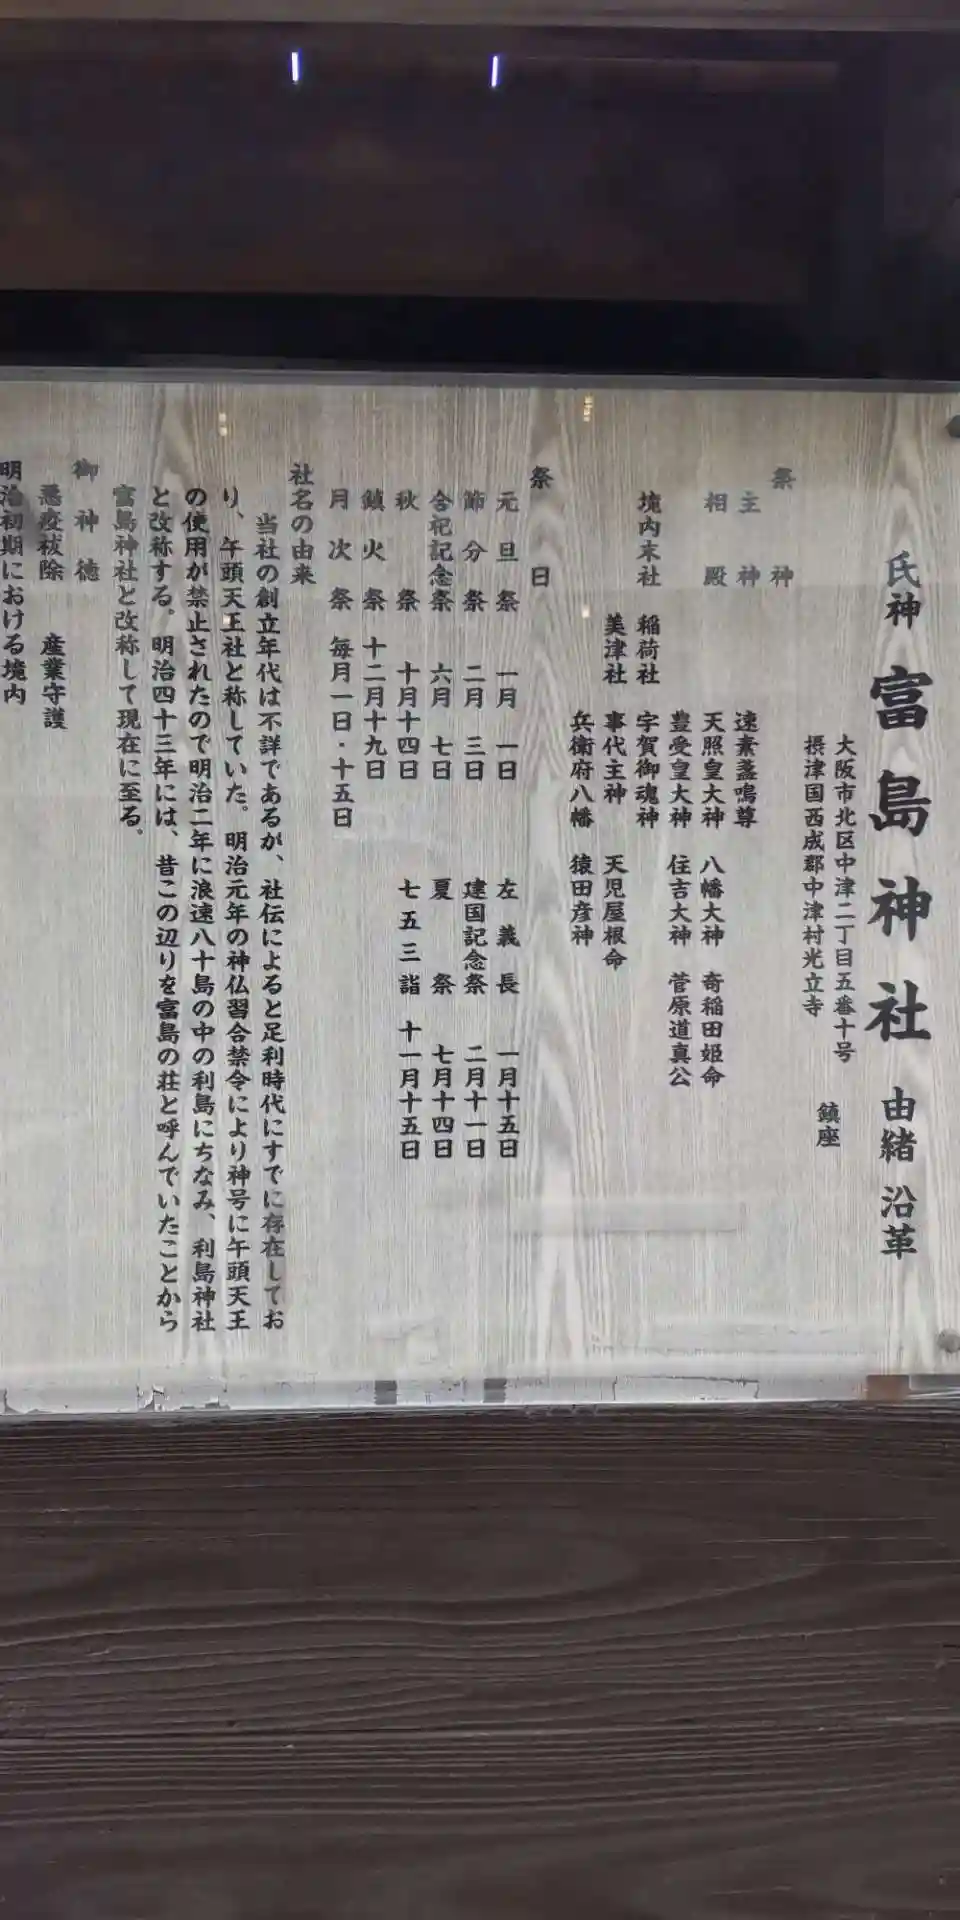 氏神 富島神社 由緒 沿革
大阪市北区中津二丁目五番十号
摂津国西成郡中津村光立寺
鎮座
祭神
主神 速素盞鳴尊
相殿 天照皇大神 八幡大神 奇稲田姫命
豊受皇大神 住吉大神 菅原道真公
境内末社 稲荷社 宇賀御魂神
美津社 事代主神 天児屋根命
兵衛府八幡 猿田彦神
祭日
元旦祭 一月一日 左義長 一月十五日
節分祭 二月三日 建国記念祭 二月十一日
合祀記念祭 六月七日 夏祭 七月十四日
秋祭 十月十四日 七五三詣 十一月十五日
鎮火祭 十二月十九日
月次祭 毎月一日・十五日
社名の由来
当社の創立年代は不詳であるが、社伝によると足利時代にすでに存在してお
り、午頭天王社と称していた。明治元年の神仏習合禁令により神号に午頭天王
の使用が禁止されたので明治二年に浪速八十島の中の利島にちなみ、利島神社
と改称する。明治四十三年には、昔この辺りを富島の荘と呼んでいたことから
富島神社と改称して現在に至る。
御神徳
悪疫祓除 産業守護
明治初期における境内